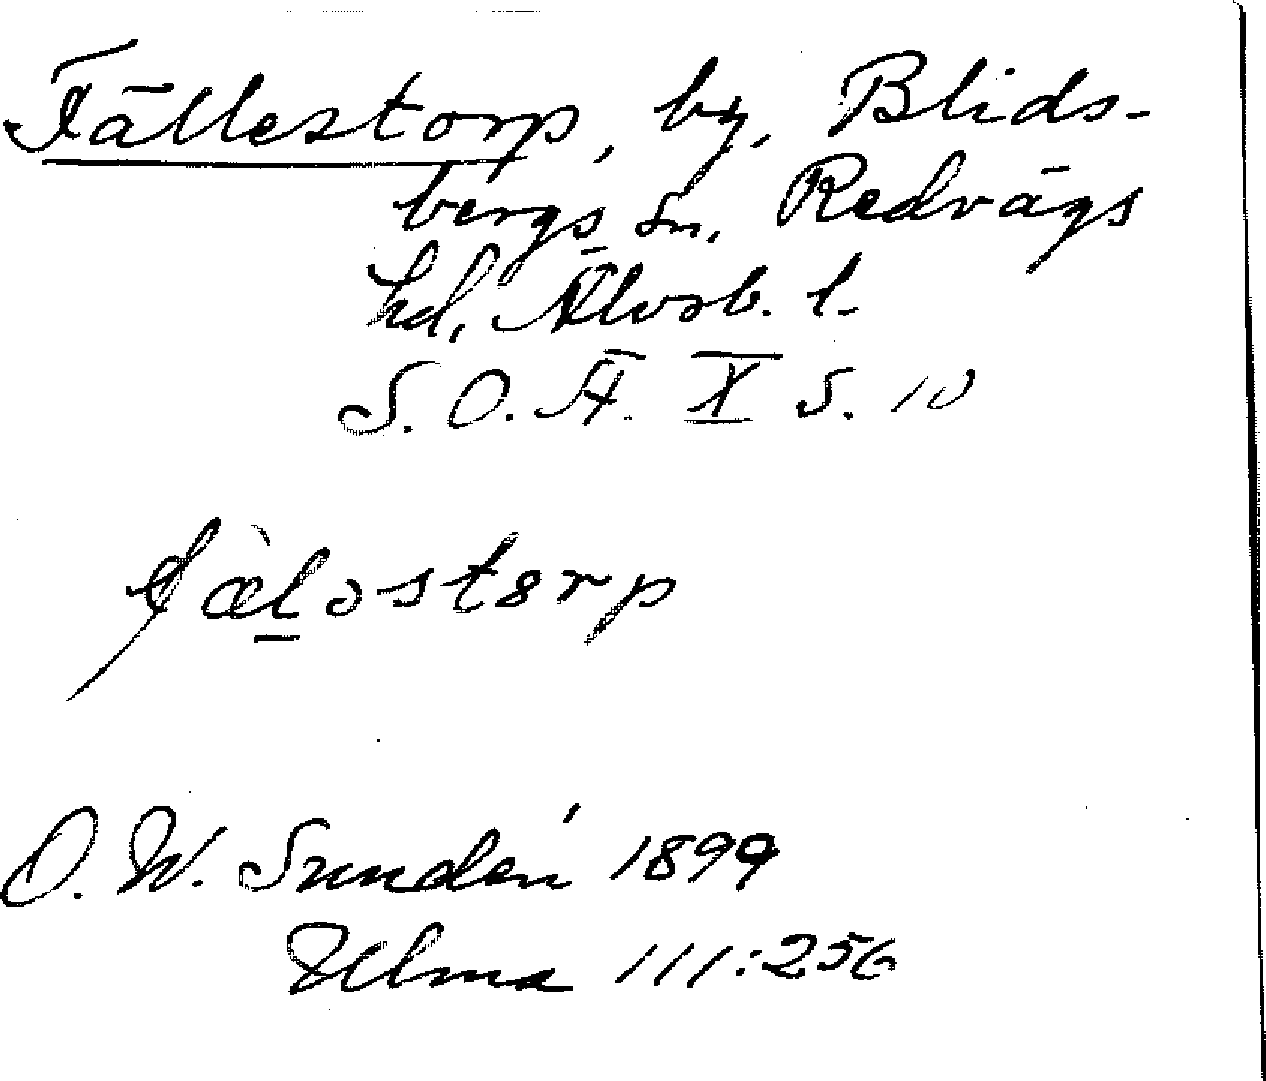 Fällestorp, by, Blids-
bergs sn, Redvägs
hd, Älvsb. l.
S. O. Ä. X s. 10
fæ̀l̲əstorp
O. W. Sundén 1899
Ulma 111:256